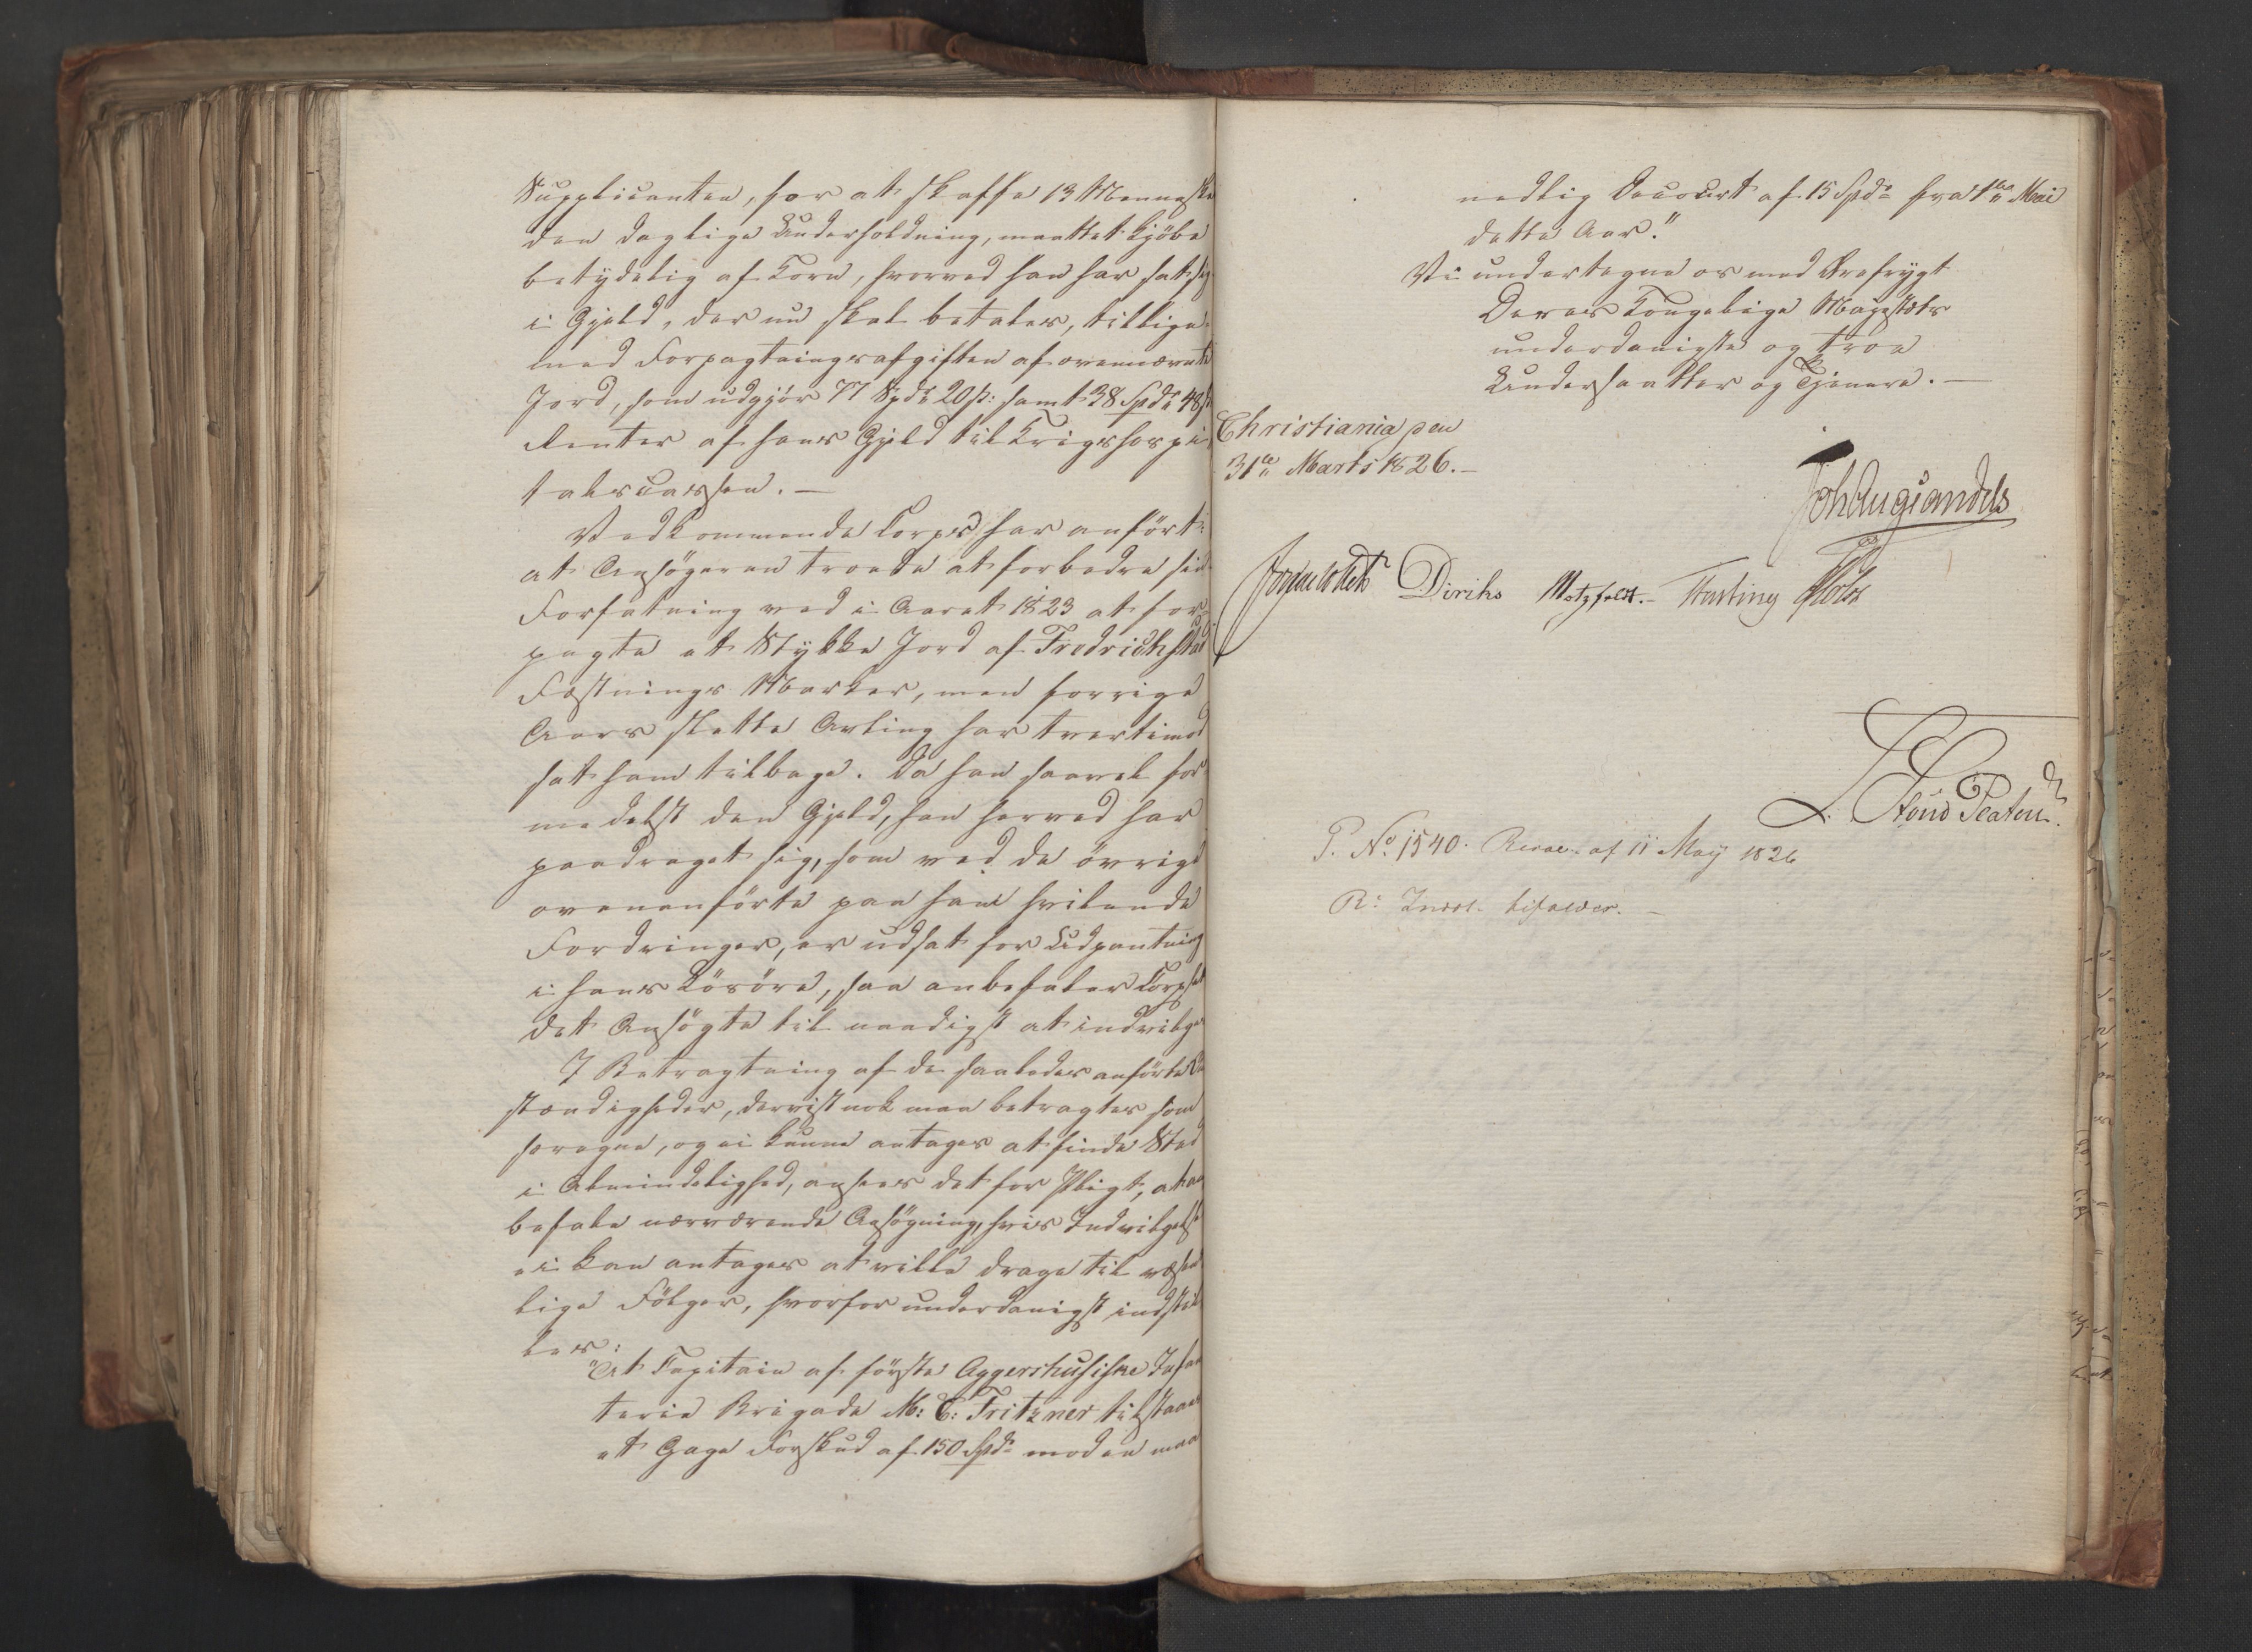 Supplicanten, for at skaffe 13 Menneske
den daglige Underholdning, maattet kjöbe
betydelig af Korn, hvorved han har sat sig
i Gjeld, der nu skal betales, tillige
med Forpagtningsafgiften af ovennævnte
Jord, som udgjör 77 Spd. 20 ß: samt 38 Spd. 48 ß
Renter af hans Gjeld til Krigshospi-
talscassen. —
Vedkommende Corps har anfört:
at Ansögeren troede at forbedre sin
Forfatning ved i Aaret 1823 at for-
pagte et Stykke Jord af Fredrichstad
Fæstnings Marker, men forrige
Aars slette Avling har tvertimod
sat ham tilbage. Da han saavel for-
medelst den Gjeld, han herved har
paadraget sig, som ved de övrige
ovenanförte paa ham hvilende
Fordringer, er udsat for Udpantning
i hans Lösöre, saa anbefaler Corpset
det Ansögte til naadigst at indvilges
I Betragtning af de saaledes anförte Om
stændigheder, der vist nok maa betragtes som
særegne, og ei kunne antages at finde Sted
i Almindelighed, ansees det for Pligt, at an
befale nærværende Ansögning, hvis Indvilgelse
ei kan antages at ville drage til væsent
lige Fölger, hvorfor underdanigst indstil
les:
"At Capitain af förste Aggershusiske Infan
terie Brigade M: C: Fritzner tilstaaes
et Gage Forskud af 150 Spd. mod en maa
nedlig Decourt af 15 Spd. fra 1te Mai
dette Aar."
Vi undertegne os med Ærefrygt
Deres Kongelige Majestæts
underdanigste og troe
Undersaatter og Tjenere. —
Christiania den
31te Marts 1826. —
Joh Aug Sandels
Diriks Motzfeldt. — Fasting Holst
P. No. 1540. Resol. af 11 May 1826
R: Indst. bifaldes. —